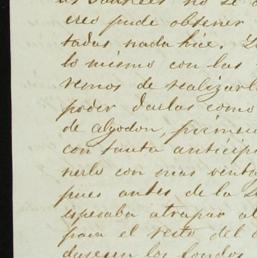 creo pude obtener
tadas nada hice.
lo mismo con las
remos de realizarl
poder darlas como
de algodon, primer
con tanta anticip
nerlo con mas venta
pues antes de la
esperaba atrapar al
para el resto del